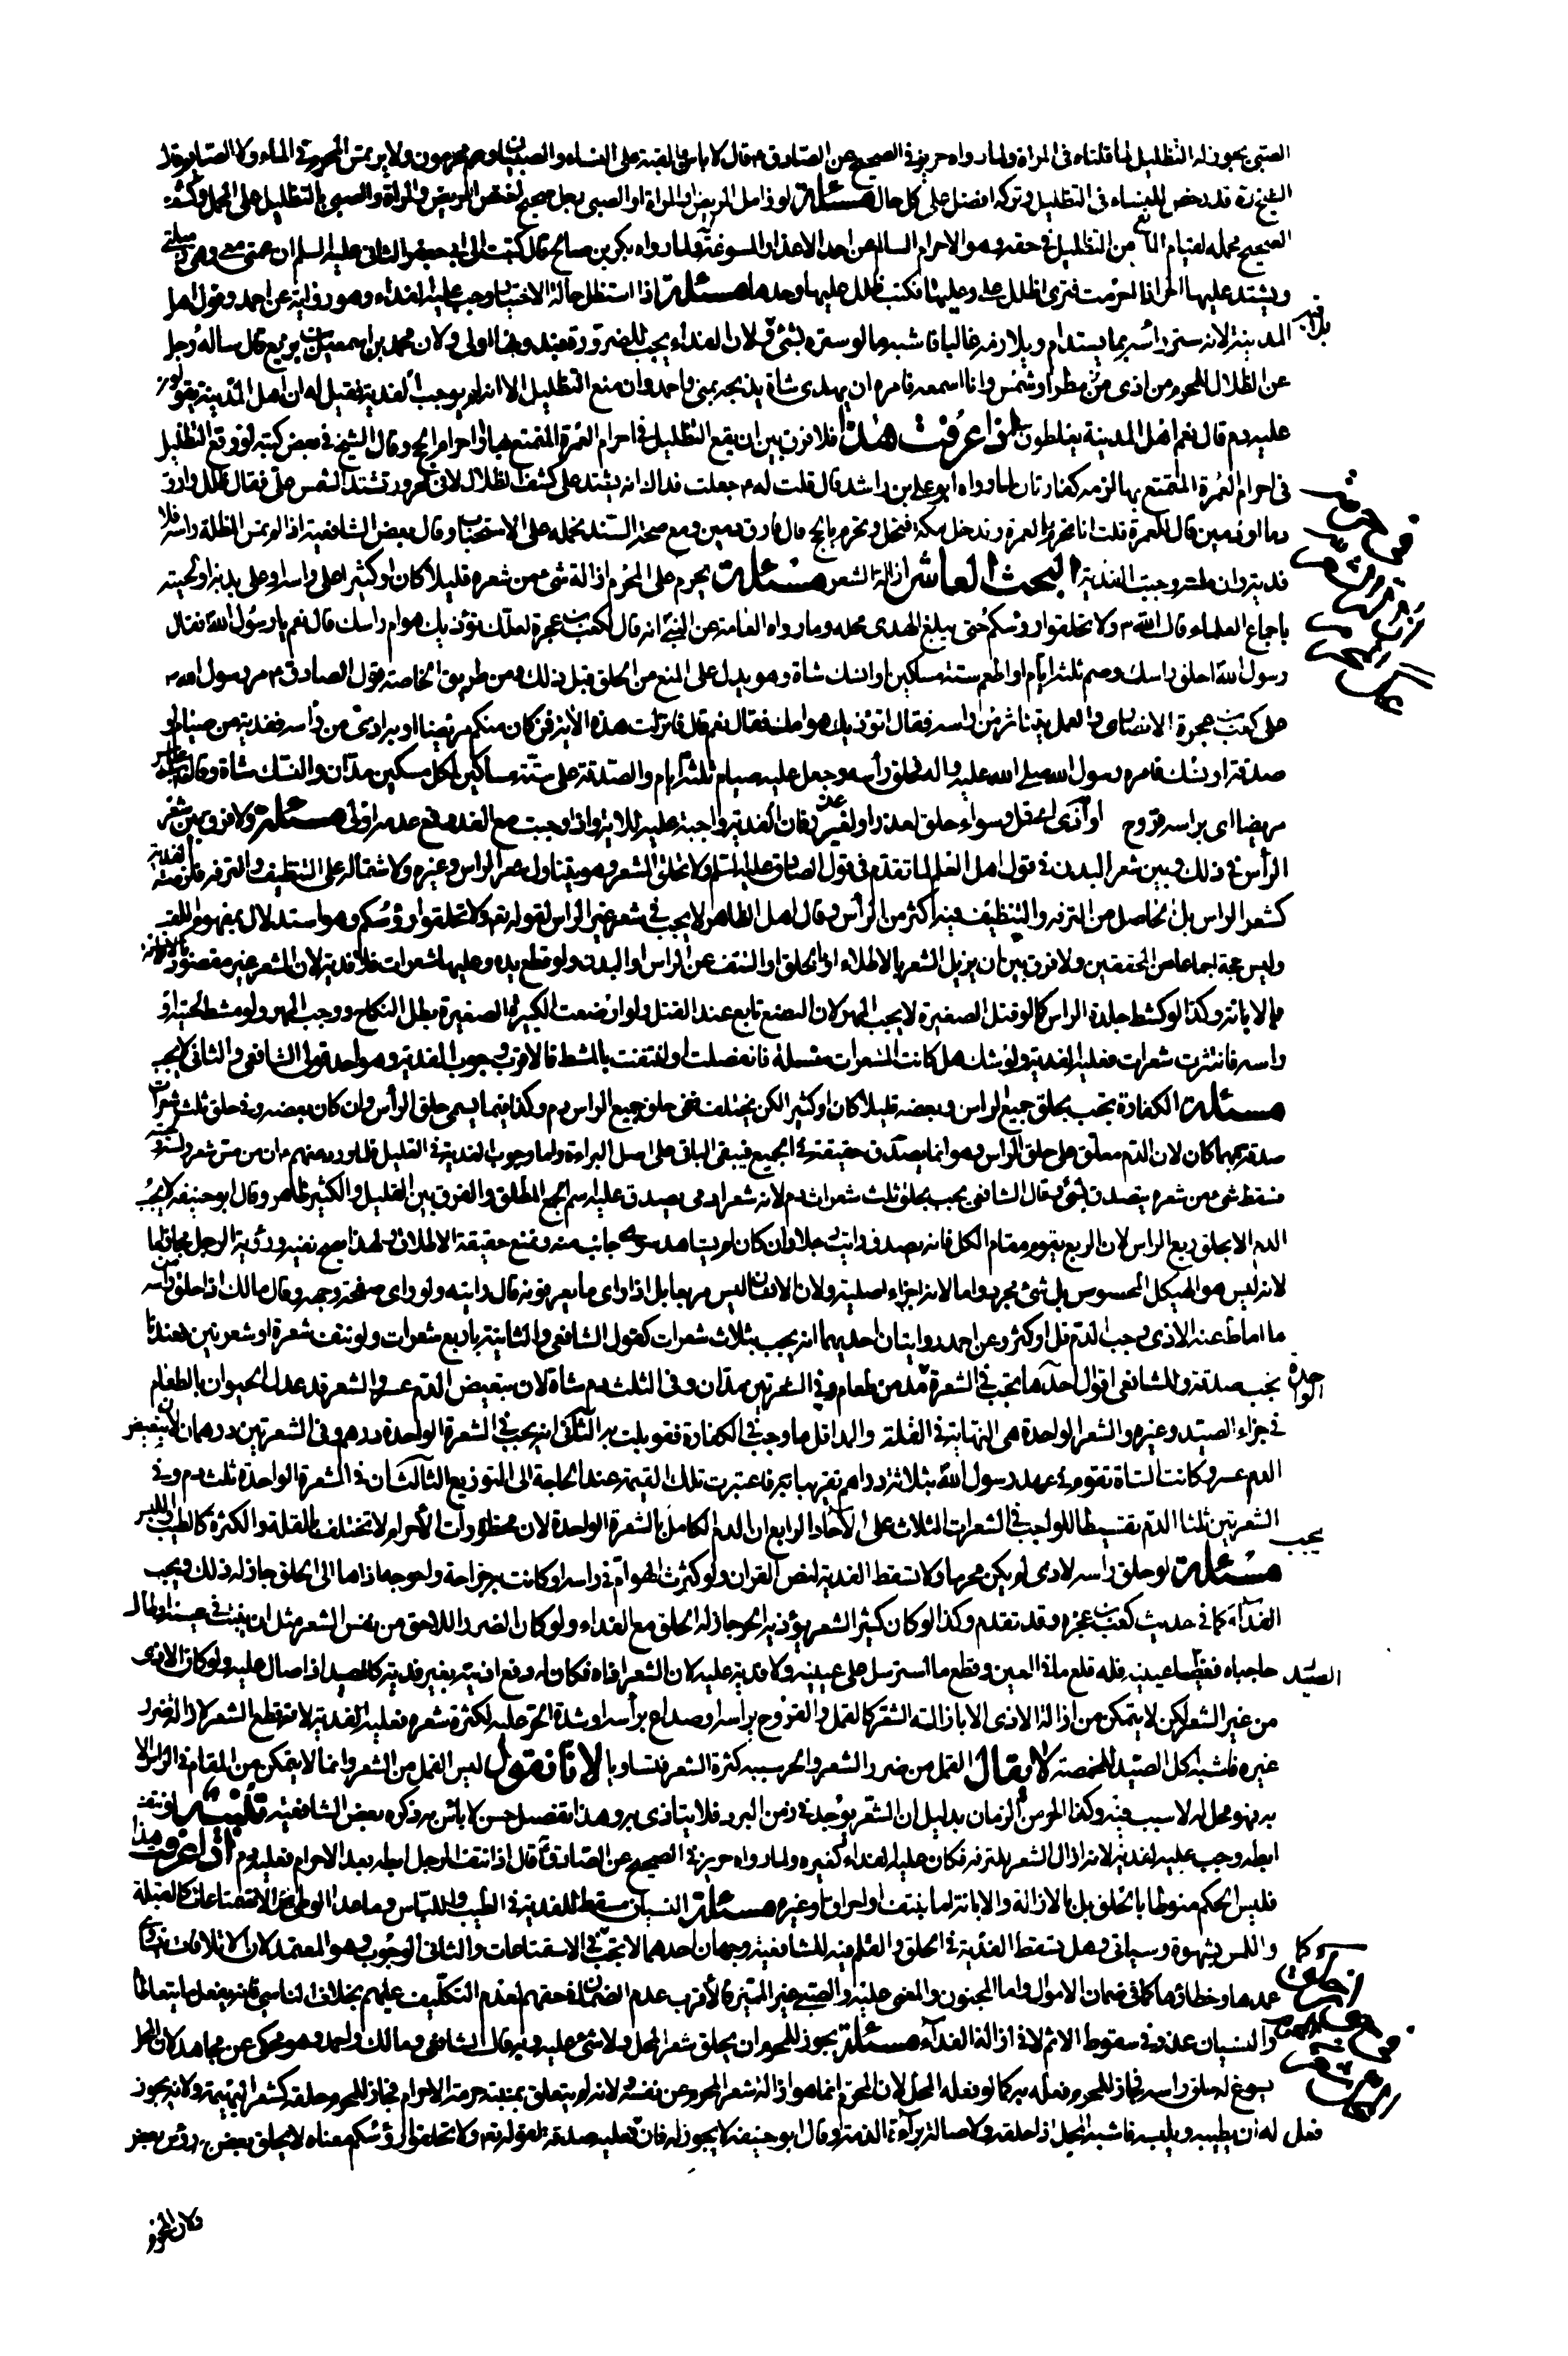 الصبي يجوز له التظليل لما قلناه في المراة ولما رواه حريز في الصحيح عن الصادق ع قال لا باس بالقبة على النساء والصبيان وهم محرمون ولا يرتمس المحرم في الماء ولا الصائم وقال
الشيخ ره قد رخص للنساء في التظليل وتركه افضل على كل حال مسئلة لو زامل المريض او المراة او الصبي رجل صحيح اختص المريض والمراة والصبي بالتظليل على المحمل وكشف
الصحيح محمله لقيام المانع من التظليل في حقه وهو الاحرام السالم عن احد الاعذار المسوغة ولما رواه بكر بن صالح قال كتبت الى ابي جعفر الثاني عليه السلم ان عمتي معي وهي زميلتي
ويشتد عليها الحر اذا احرمت فترى اظلل علي وعليها فكتب ظلل عليها وحدها مسئلة اذا استظل حالة الاختيار وجب عليه الفداء وهو رواية عن احمد وقول اهل
المدينة لانه ستر راسه بما يستدام ويلازمه غالبا فاشبه ما لو ستره بشئ ولان الفداء يجب للضرورة فبدونها اولى ولان محمد بن اسمعيل بن بزيع قال ساله رجل
عن الظلال للمحرم من اذى من مطر او شمس وانا اسمعه فامره ان يهدي شاة يذبحه بمنى واحمد وان منع التظليل الا انه لم يوجب الفدية فقيل له ان اهل المدينة يقولون
عليه دم قال نعم اهل المدينة يغلطون اذا عرفت هذا فلا فرق بين ان يقع التظليل في احرام العمرة المتمتع بها او احرام الحج وقال الشيخ في بعض كتبه لو وقع التظليل
في احرام العمرة المتمتع بها لزمه كفارتان لما رواه ابو علي بن راشد قال قلت له ع جعلت فداك انه يشتد علي كشف الظلال لاني محرور تشتد الشمس علي فقال ظلل وارق
دما او دمين قال للعمرة قلت انا نحرم بالعمرة وندخل مكة فنحل ونحرم بالحج قال فارق دمين ومع صحة السند نحمله على الاستحباب وقال بعض الشافعية اذا لم تمس المظلة راسه فلا
فدية وان مسته وجبت الفدية البحث العاشر ازالة الشعر مسئلة يحرم على المحرم ازالة شئ من شعره قليلا كان او كثيرا على راسه او على بدنه او لحيته
باجماع العلماء قال الله تع ولا تحلقوا رؤسكم حتى يبلغ الهدى محله وما رواه العامة عن النبي ص انه قال لكعب بن عجرة لعلك تؤذيك هوام راسك قال نعم يا رسول الله فقال
رسول الله احلق راسك وصم ثلثة ايام او اطعم ستة مساكين او انسك شاة وهو يدل على المنع من الحلق قبل ذلك ومن طريق الخاصة قول الصادق ع مر رسول الله ص
على كعب بن عجرة الانصاري والقمل يتناثر من راسه فقال اتؤذيك هوامك فقال نعم قال فانزلت هذه الاية فمن كان منكم مريضا او به اذى من راسه ففدية من صيام او
صدقة او نسك فامره رسول الله صلى الله عليه واله فحلق راسه وجعل عليه صيام ثلثة ايام والصدقة على ستة مساكين لكل مسكين مدان والنسك شاة وقال
مريضا اي براسه قروح او اذى اي قمل وسواء حلق لعذر او لغير عذر فان الفدية واجبة عليه للاية واذا وجبت مع العذر فمع عدمه اولى مسئلة ولا فرق بين شعر
الراس في ذلك وبين شعر البدن في قول اهل العلم لما تقدم في قول الصادق عليه السلم ولا تحلق الشعر وهو يتناول شعر الراس وغيره ولاشتماله على التنظيف والترفه فلزمته الفدية
كشعر الراس بل الحاصل من الترفه والتنظيف فيه اكثر من الراس وقال اهل الظاهر لا يجب في شعر غير الراس لقوله تع ولا تحلقوا رؤسكم وهو استدلال بمفهوم اللقب
وليس حجة اجماعا من المحققين ولا فرق بين ان يزيل الشعر بالاطلاء او الحلق او النتف عن الراس او البدن ولو قطع يده وعليها شعرات فلا فدية لان الشعر غير مقصود
بالابانة وكذا لو كشط جلدة الراس كما لو قتل الصغيرة لا يجب المهر لان البضع تابع عند القتل ولو ارضعت الكبيرة الصغيرة بطل النكاح ووجب المهر ولو مشط لحيته او
راسه فانتثرت شعرات فعليه الفدية ولو شك هل كانت الشعرات منسلة فانفصلت او انتتفت بالمشط فالاقرب وجوب الفدية وهو احد قولي الشافعي والثاني لا يجب
مسئلة الكفارة تجب بحلق جميع الراس وبعضه قليلا كان او كثيرا لكن يختلف ففي حلق جميع الراس دم وكذا فيما يسمى حلق الراس وان كان بعضه وفي حلق ثلث شعرات
صدقة مهما كان لان الدم معلق على حلق الراس وهو انما يصدق حقيقة في الجميع فيبقى الباقي على اصل البراءة واما وجوب الفدية في القليل فلما ورد عنهم ع ان من مس شعر راسه ولحيته
فسقط شئ من شعره يتصدق بشئ وقال الشافعي يجب بحلق ثلث شعرات دم لانه شعر ادمي يصدق عليه اسم الجمع المطلق والفرق بين القليل والكثير ظاهر وقال ابو حنيفة لا يجب
الدم الا بحلق ربع الراس لان الربع يقوم مقام الكل فانه يصدق رايت رجلا وان كان لم يشاهد سوى جانب منه وتمنع حقيقة الاطلاق ولهذا يصح نفيه ورؤية الرجل مجاز
لانه ليس هو الهيكل المحسوس بل شئ مجرد واما لانه اجزاء اصلية ولان الانسان ليس مربعا بل اذا راى ما يعرفونه قال رايته ولو راى صفحة وجهه وقال مالك اذا حلق من راسه
ما اماط عنه الاذى وجب الدم قل او كثر وعن احمد روايتان احديهما انه يجب بثلاث شعرات كقول الشافعي والثانية باربع شعرات ولو نتف شعرة او شعرتين فعندنا
يجب صدقة وللشافعي اقوال احدها يجب في الشعرة الواحدة مد من طعام وفي الشعرتين مدان وفي الثلث دم شاة لان تبعيض الدم عسر والشعر قد عدل الحيوان بالطعام
في جزاء الصيد وغيره والشعر الواحدة هي النهاية في القلة والمد اقل ما وجب في الكفارة فقوبلت به الثاني انه يجب في الشعرة الواحدة درهم وفي الشعرتين درهمان لان تبعيض
الدم عسر وكانت الشاة تقوم في عهد رسول الله بثلاثة دراهم تقريبا فاعتبرت تلك القيمة عند الحاجة الى التوزيع الثالث ان في الشعرة الواحدة ثلث دم وفي
الشعرتين ثلثا الدم تقسيطا للواجب في الشعرات الثلاث على الاحاد الرابع ان الدم الكامل يجب بالشعرة الواحدة لان محظورات الاحرام لا تختلف بالقلة والكثرة كالطيب واللبس
مسئلة لو حلق راسه لاذى لم يكن محرما ولا تسقط الفدية لنص القران ولو كثرت الهوام في راسه او كانت به جراحة واحوجه اذاها الى الحلق جاز له ذلك ويجب
الفداء كما في حديث كعب بن عجرة وقد تقدم وكذا لو كان كثير الشعر يؤذيه الحر جاز له الحلق مع الفداء ولو كان الضرر اللاحق من نفس الشعر مثل ان ينبت في عينه او طال
حاجباه فغطيا عينيه فله قلع ما في العين وقطع ما استرسل على عينيه ولا فدية عليه لان الشعر اذاه فكان له دفع اذيته بغير فدية كالصيد اذا صال عليه ولو كان الاذى
من غير الشعر لكن لا يتمكن من ازالة الاذى الا بازالة الشعر كالقمل والقروح براسه او صداع براسه او شدة الحر عليه لكثرة شعره فعليه الفدية لانه قطع الشعر لازالة ضرر
غيره فاشبه اكل الصيد للمخمصة لا يقال القمل من ضرر الشعر والحر سببه كثرة الشعر فتساويا لانا نقول ليس القمل من الشعر وانما لا يتمكن من المقام في الراس الا
به فهو محل له لا سبب فيه وكذا الحر من الزمان بدليل ان الشعر يوجد في زمن البرد فلا يتاذى به وهذا تفصيل حسن لا باس به ذكره بعض الشافعية تذنيب لو نتف
ابطه وجب عليه الفدية لانه ازال الشعر للترفه فكان عليه الفداء كغيره ولما رواه حريز في الصحيح عن الصادق ع قال اذا نتف الرجل ابطه بعد الاحرام فعليه دم اذا عرفت هذا
فليس الحكم منوطا بالحلق بل بالازالة والابانة اما بنتف او احراق او غيره مسئلة النسيان مسقط للفدية في الطيب واللباس وما عدا الوطي من الاستمتاعات كالقبلة
واللمس بشهوة وسياتي وهل تسقط الفدية في الحلق والقلم فيه للشافعية وجهان احدهما لا تجب كما في الاستمتاعات والثاني الوجوب وهو المعتمد لان الاتلافات يتساوى
عمدها وخطاؤها كما في ضمان الاموال واما المجنون والمغمى عليه والصبي غير المميز فالاقرب عدم الضمان في حقهم لعدم التكليف عليهم بخلاف الناسي فانه يفعل ما يتعاطاه
والنسيان عذر في سقوط الاثم لا في ازالة الفداء مسئلة يجوز للمحرم ان يحلق شعر المحل ولا شئ عليه وبه قال الشافعي ومالك واحمد وهو محكي عن مجاهد لان المحل
يسوغ له حلق راسه فجاز للمحرم فعله به كما لو فعله المحل لان المحرم انما هو ازالة شعر المحرم عن نفسه لانه لم يتعلق بمنبته حرمة الاحرام فجاز للمحرم حلقه كشعر البهيمة ولانه يجوز
له ان يطيبه ويلبسه فاشبه المحل اذا حلقه ولاصالة براءة الذمة وقال ابو حنيفة لا يجوز له فان فعل فعليه صدقة لقوله تع ولا تحلقوا رؤسكم معناه لا يحلق بعضكم رؤس بعض